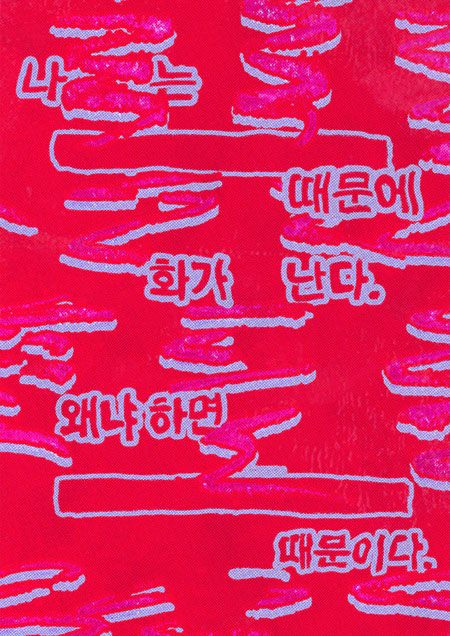 나는
때문에
화가 난다.
왜냐하면
때문이다.